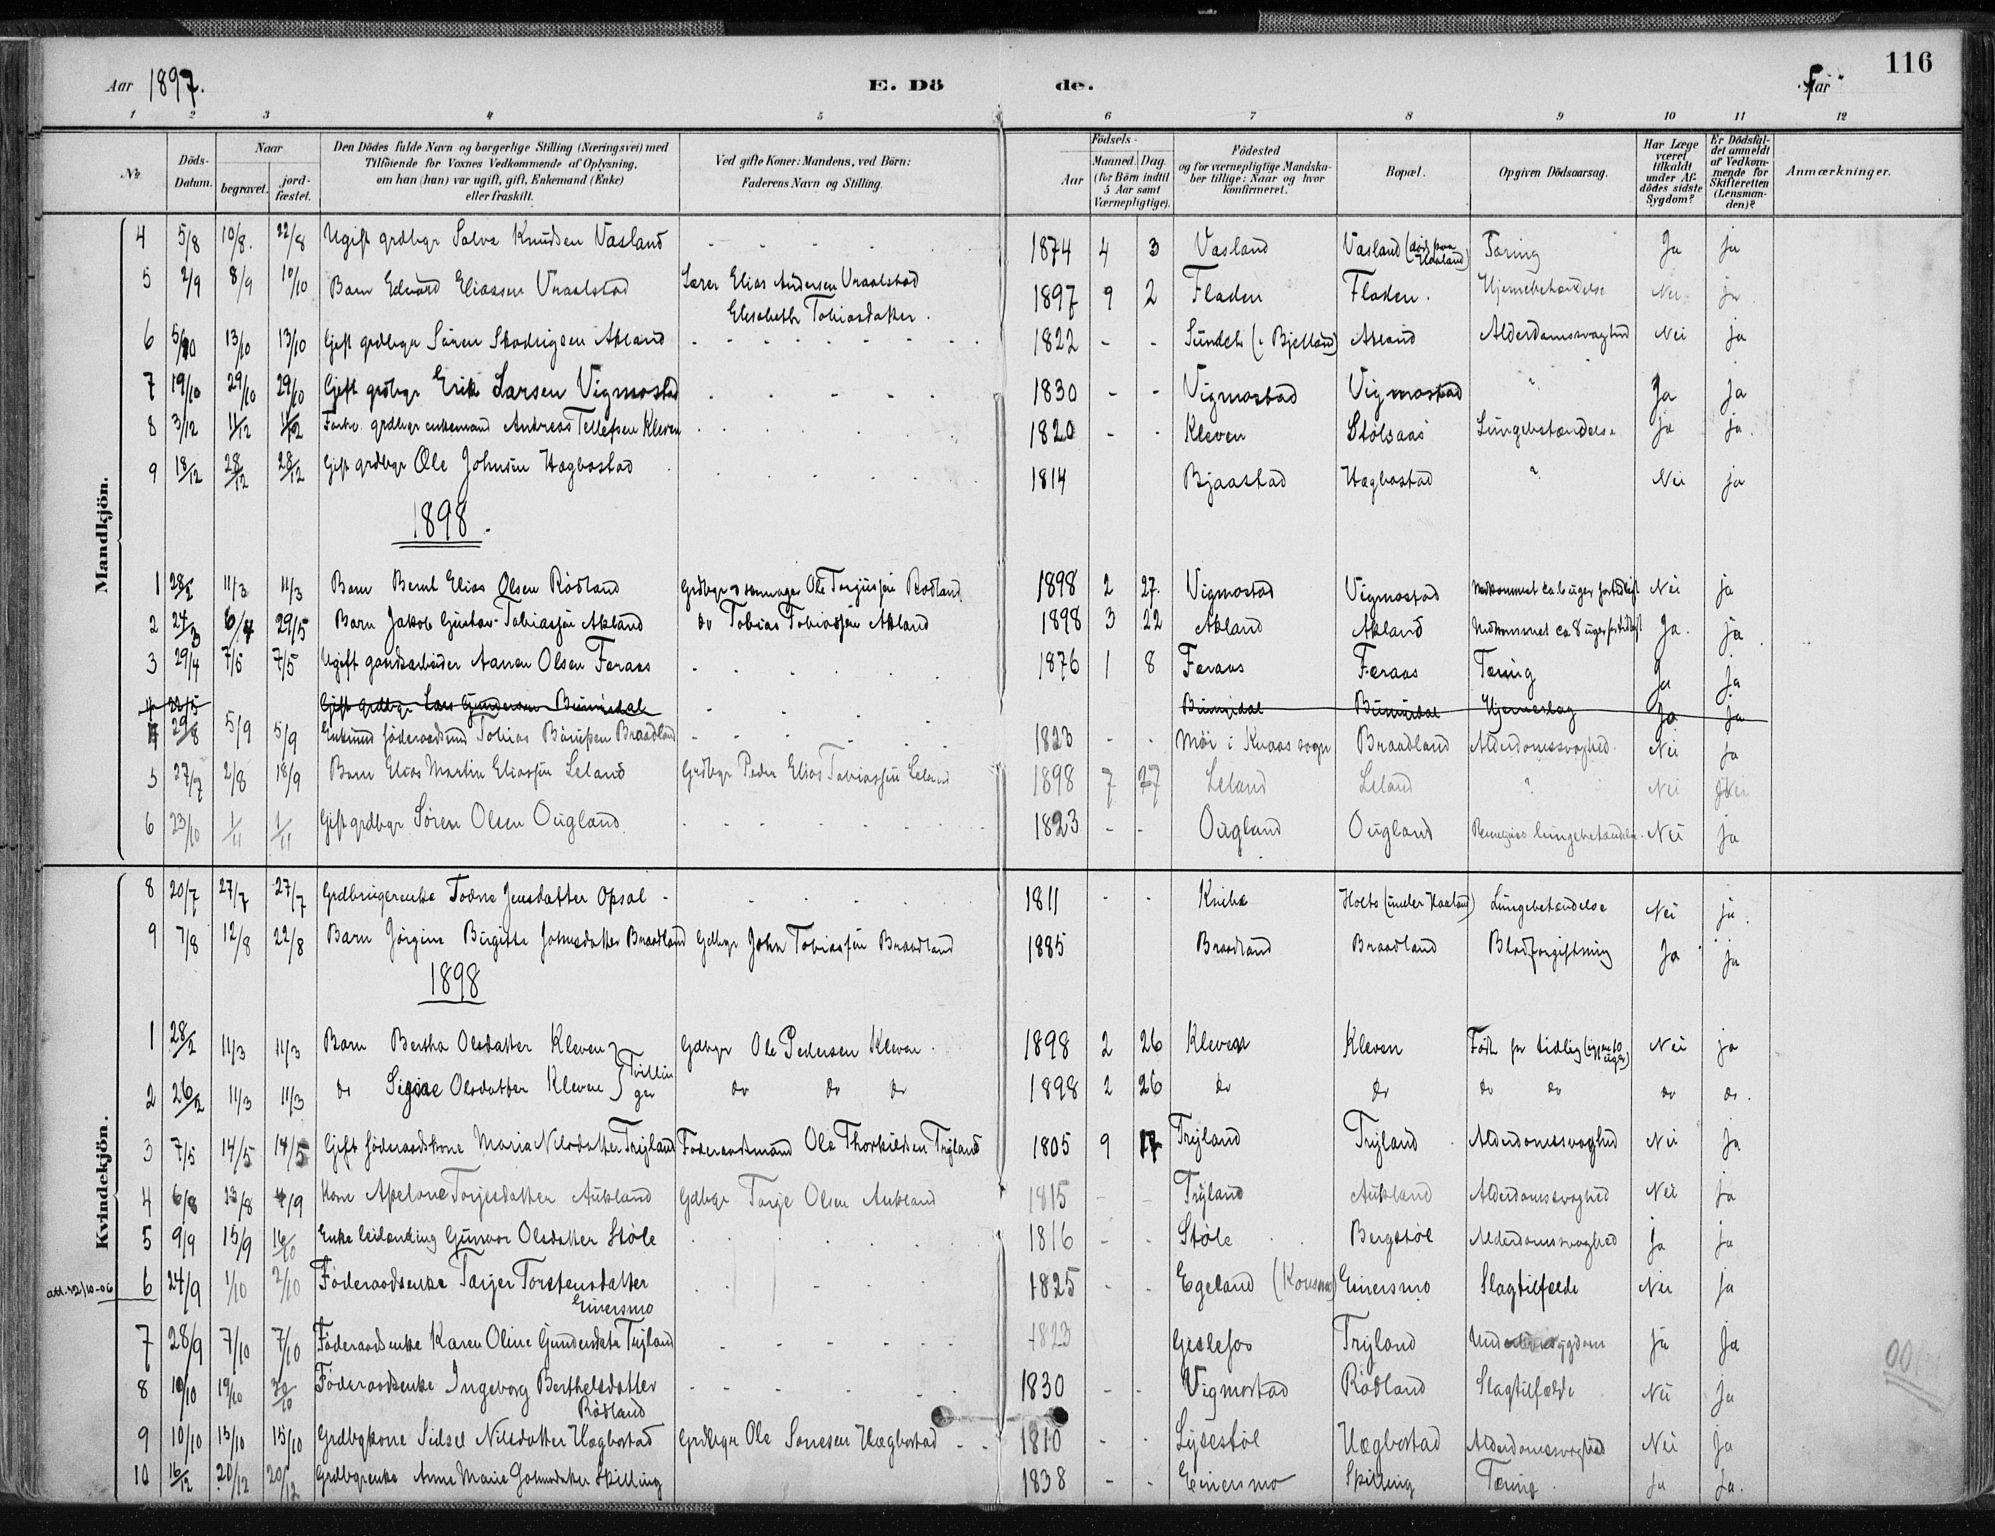 116
Aar 1897.
E. Dö de.
Aar
1 2 3 4 5 6 7 8 9 10 11 12
No.
Döds-Datum.
Naar
begravet.
jord-fæstet.
Den Dödes fulde Navn og borgerlige Stilling (Næringsvei) med
Tilföiende for Voxnes Vedkommende af Oplysning,
om han (hun) var ugift, gift, Enkemand (Enke)
eller fraskilt.
Ved gifte Koner: Mandens, ved Börn:
Faderens Navn og Stilling.
Födsels-
Aar
Maaned. Dag.
(for Börn indtil
5 Aar samt
Værnepligtige).
Födested
og for værnepligtige Mandska-
ber tillige: Naar og hvor
konfirmeret.
Bopæl.
Opgiven Dödsaarsag.
Har Læge
været
tilkaldt
under Af-
dödes sidste
Sygdom?
Er Dödsfal-
det anmeldt
af Vedkom-
mende for
Skifteretten
(Lensman-
den)?
Anmærkninger.
Mandkjön.
4 5/8 10/8. 22/8 Ugift grdbgr Salve Knudsen Vasland 1874 4 3 Vasland Vasland Tæring Ja ja
5 2/9 8/9 10/10 Barn Edvard Eliassen Vraalstad Lærer Elias Andersen Vraalstad 1897 9 2 Fladen Fladen. Hjernebetændelse Nei ja
Elisabeth Tobiasdatter.
6 5/10 13/10 13/10 Gift grdbgr Sören Akland 1822 - - (i Bjelland) Akland Alderdomssvaghed Nei ja
7 19/10 29/10 29/10 Gift grdbgr Erik Larsen Vigmostad 1830 - - Vigmostad Vigmostad " Ja Ja
8 3/12 11/12 11/12 Forhv. grdbgr enkemand Andreas Tellefsen Kleven 1820 - - Kleven Stölsaas Lungebetændelse ja ja.
9 18/12 28/12 28/12 Gift grdbgr Ole Johnsen Hægbostad 1814 Bjaastad Hægbostad " Nei ja
1898.
1 28/2 11/3 11/3 Barn Bernt Elias Olsen Rödland Ole Tarjussen Rödland. 1898 2 27. Vigmostad Vigmostad Nedkommet ca. 6 uger fortidligt Nei ja
2 24/3 6/4 29/5 Barn Jakob Gustav Tobiassen Akland do Tobias Tobiassen Akland 1898 3 22 Akland Akland Nedkommet ca 8 uger fortidligt Ja. ja
3 29/4 7/5 7/5 Ugift Aanen Olsen Færaas 1876 1 8 Færaas Færaas Tæring Ja Ja
4 22/5 Gift grdbgr Lars Gundersen Hjerneslag Ja ja
4 29/8 5/9 5/9 Enkemand föderaadsmand Tobias Braadland 1823 - - Möi i Kvaas sogn Braadland Alderdomssvaghed. Nei ja
5 27/7 2/8 18/9 Barn Elias Martin Eliassen Leland Grdbgr Peder Elias Tobiassen Leland 1898 7 27 Leland Leland " Nei
6 23/10 1/11 1/11 Gift grdbgr Sören Olsen Ougland 1823 - - Ougland Ougland lungebetændelse. Nei ja
Kvindekjön.
8 20/7 27/7 27/7 Grdbrugerenke Todne Jensdatter Opsal 1811 - - Knibe Holte (under Haaland) Lungebetændelse Nei ja.
9 7/8 12/8 22/8 Barn Jörgine Birgitte Johnsdatter Braadland Gdbgr John Tobiassen Braadland 1885 Braadland Braadland Blodforgiftning Ja ja
1898
1 28/2 11/3 11/3 Barn Bertha Olsdatter Kleven Gdbgr Ole Pedersen Kleven. 1898 2 26 Kleven Kleven Född for tidlig Nei ja
Tvillinger
2 26/2 11/3 11/3 do Signe Olsdatter Kleven do do do 1898 2 26 do do do do do do.
3 7/5 14/5 14/5 Gift föderaadskone Maria Nilsdatter Tryland Föderaadsmand Ole Thorkildsen Tryland 1805 9 17 Tryland Tryland Alderdomssvaghed Nei Ja
4 6/8 13/8 4/9 Kone Apelone Torjesdatter Aukland Gdbgr Tarje Olsen Aukland 1815 - - Tryland Aukland Alderdomssvaghed Nei ja
5 9/9 15/9 16/10 Enke leilending Gunvor Olsdatter Stöle 1816 - - Stöle Bergstöl Alderdomssvaghed ja ja
att. 12/10-06 6 24/9 1/10 2/10 Föderaadsenke Tarjer Torstensdatter 1825 - - Egeland (Konsmo) Einersmo Slagtilfelde Nei Ja
Einersmo
7 28/9 7/10 7/10 Föderaadsenke Karen Oline Gundersdatr Tryland 1823 Geslefos Tryland ja ja
8 10/10 19/10 30/10 Föderaadsenke Ingeborg Berthelsdatter 1830 - - Vigmostad Rödland Slagtilfælde Nei ja
Rödland
9 10/10 15/10 15/10 Grdbgkone Sidsel Nilsdatter Hægbostad Grdbgr Ole Hægbostad 1810 - - Lysestöl Hægbostad Alderdomssvaghed Nei Ja
10 16/12 20/12 20/12 Grdbgrenke Anne Marie Gohnsdatter Spilling 1838 - - Einersmo Spilling Tæring. Ja Ja.